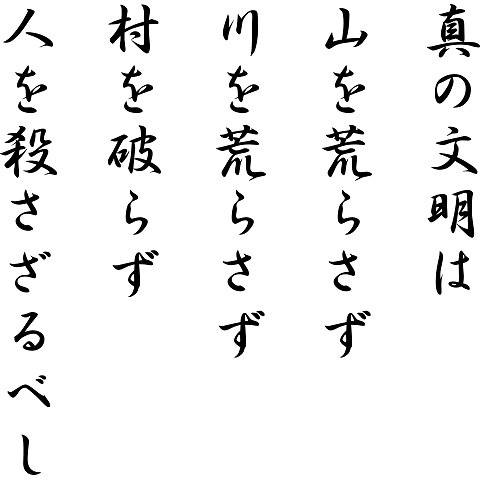 真の文明は
山を荒らさず
川を荒らさず
村を破らず
人を殺さざるべし